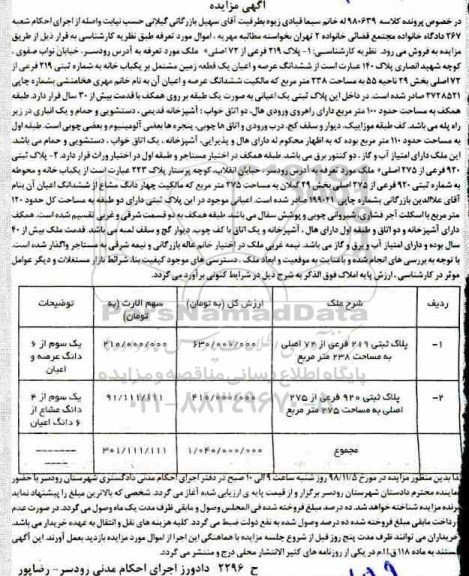 آگهی مزایده
در خصوص پرونده کلاسه ۹۸۰۶۳۹ له خانم سیما قیادی زیوه بطرفیت آقای سهیل بازرگانی گیلانی حسب نیابت واصله از اجرای احکام شعبه
۲۶۷ دادگاه خانواده مجتمع قضائی خانواده ۲ تهران بخواسته مطالبه مهریه ، اموال مورد تعرفه طبق نظریه کارشناسی به قرار ذیل از طریق
مزایده به فروش می رود. نظریه کارشناسی: ۱- پلاک ۲۱۹ فرعی از ۷۲ اصلی» ملک مورد تعرفه به آدرس رودسر، خیابان نواب صفوی ،
کوچه شهید انصاری پلاک ۱۴۰ عبارت است از ششدانگ عرصه و اعیان یک قطعه زمین مشتمل بر یکباب خانه به شماره ثبتی ۲۱۹ فرعی از
۷۲ اصلی بخش ۲۹ ناحیه ۵۵ به مساحت ۲۳۸ متر مربع که مالکیت ششدانگ عرصه و اعیان آن به نام خانم مهری هخامنشی بشماره چاپی
۲۷۲۸۵۲۱ صادر شده است. در داخل این پلاک ثبتی یک اعیانی به صورت یک طبقه بر روی همکف با قدمت بیش از ۳۰ سال قرار دارد. طبقه
همکف به مساحت حدود ۱۰۰ متر مربع دارای راهروی ورودی هال، دو اتاق خواب ، آشپزخانه قدیمی، دستشویی و حمام و یک انباری در زیر
راه پله می باشد. کف طبقه موزاییک، دیوار و سقف گچ، درب ورودی و اتاق ها چوبی، پنجره ها بعضی آلومینیوم و بعضی چوبی است. طبقه اول
به مساحت حدود ۱۱۰ متر مربع بوده که به اظهار محکوم له دارای هال و پذیرایی، آشپزخانه ، یک اتاق خواب ، دستشویی و حمام می باشد.
این ملک دارای امتیاز آب و گاز ، دو کنتور برق می باشد. طبقه همکف در اختیار مستاجر و طبقه اول در اختیار وراث قرار دارد. ۲- پلاک ثبتی
۹۲۰ فرعی از ۲۷۵ اصلی» ملک مورد تعرفه به آدرس رودسر، خیابان انقلاب، کوچه پرستار پلاک ۲۲۳ عبارت است از یکباب خانه و محوطه
به شماره ثبتی ۹۲۰ فرعی از ۲۷۵ اصلی بخش ۲۹ گیلان به مساحت ۲۷۵ متر مربع که مالکیت چهار دانگ مشاع از ششدانگ اعیان آن بنام
آقای علاالدین بازرگانی بشماره چاپی ۱۹۹۰۲۱ صادر شده است. اعیانی موجود در این پلاک ثبتی دارای دو طبقه به مساحت کل حدود ۱۲۰
متر مربع با اسکلت آجر فشاری، شیروانی چوبی و پوشش سفال می باشد. طبقه همکف به دو قسمت شرقی و غربی تقسیم شده است. همکف
دارای آشپزخانه و دو اتاق و طبقه اول دارای هال ، آشپزخانه و یک اتاق با کف چوب، دیوار گچ و سقف لمبه می باشد. قدمت ملک بیش از ۴۰
سال بوده و دارای امتیاز آب و برق و گاز می باشد. نیمه غربی ملک در اختیار خانم غاله بازرگانی و نیمه شرقی به مستاجر واگذار شده است.
با توجه به بررسی های انجام شده و باعنایت به موقعیت و ابعاد ملک ، دسترسی های موجود کیفیت بنا، شرائط بازار مستغلات و دیگر عوامل
موثر در کارشناسی ، ارزش پایه املاک فوق الذکر به شرح ذیل در شرایط کنونی برآورد می گردد.
ردیف شرح ملک ارزش کل (به تومان) سهم الارث (به تومان) توضیحات
۱- پلاک ثبتی ۲۱۹ فرعی از ۷۲ اصلی به مساحت ۲۳۸ متر مربع ۶۳۰/۰۰۰/۰۰۰ ۲۱۰/۰۰۰/۰۰۰ یک سوم از ۶ دانگ عرصه و اعیان
۲- پلاک ثبتی ۹۲۰ فرعی از ۲۷۵ اصلی به مساحت ۲۷۵ متر مربع ۴۱۰/۰۰۰/۰۰۰ ۹۱/۱۱۱/۱۱۱ یک سوم از ۴ دانگ مشاع از ۶ دانگ اعیان
مجموع ۱/۰۴۰/۰۰۰/۰۰۰ ۳۰۱/۱۱۱/۱۱۱ -------
لذا بدین منظور مزایده در مورخ ۹۸/۱۱/۵ روز شنبه ساعت ۹ الی ۱۰ صبح در دفتر اجرای احکام مدنی دادگستری شهرستان رودسر با حضور
نماینده محترم دادستان شهرستان رودسر برگزار و از قیمت پایه ی ارزیابی شده آغاز می گردد. شخصی که بالاترین مبلغ را پیشنهاد نماید
برنده مزایده شناخته خواهد شد. ده درصد مبلغ فروخته شده فی المجلس وصول و مابقی ظرف مدت یک ماه وصول می گردد. در صورت عدم
پرداخت مابقی مبلغ فروخته شده ده درصد وصول شده به نفع دولت ضبط می گردد. کلیه هزینه های نقل و انتقال به عهده خریدار می باشد.
خریداران می توانند ظرف مدت پنج روز قبل از شروع جلسه مزایده با هماهنگی این اجرا از اموال مورد مزایده بازدید بعمل آورند. این آگهی
مستند به ماده ۱۱۸ ق.ا.ا.م در یکی از روزنامه های کثیر الانتشار محلی درج و منتشر می گردد.
ح ۲۲۹۶ دادورز اجرای احکام مدنی رودسر- رضاپور
ParsNamadData
پایگاه اطلاع رسانی مناقصه و مزایده
۰۲۱-۸۸۳۴۹۶۷۰